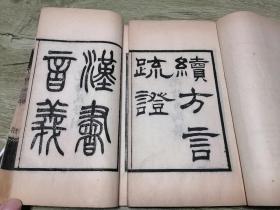 續方言
疏證
漢書
音義